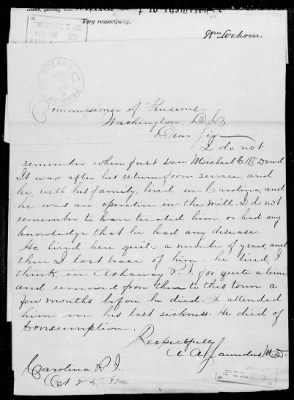 Very respectfully,
Wm Lochren
Commissioner of Pensions
Washington, D.C.
Dear Sir
I do not
remember when first saw Michael
It was after his return from service and
he, with his family, lived in Carolina, and
he was an operative in the mill. I do not
remember to have treated him, or had any
knowledge that he had any disease.
He lived here quite a number of years, and
then I lost trace of him - he lived, I
think, in Ashaway R.I. for quite a time
and removed from there to this town a
few months before he died. I attended
him in his last sickness. He died of
Consumption.
Respectfully
A. A. Saunders M.D.
Carolina R.I.
Oct 25,